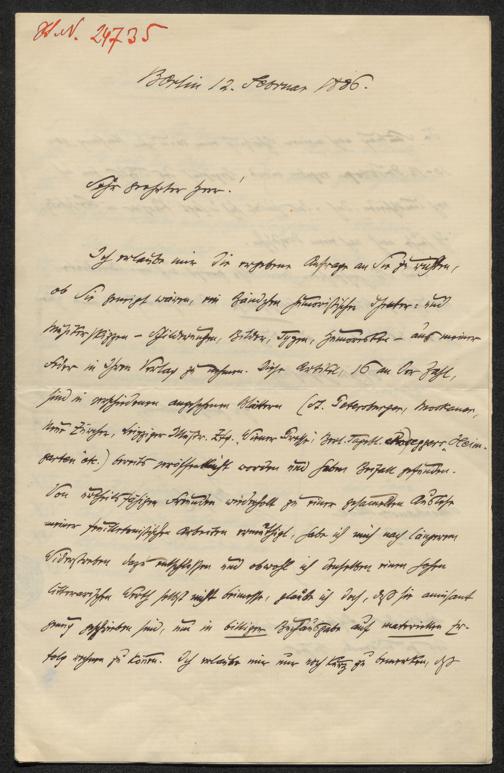 H. I. N. 24735
Berlin 12. Februar 1886.
Sehr geehrter Herr!
Ich erlaube mir die ergebene Anfrage an Sie zu richten,
ob Sie geneigt wären, ein Bändchen humoristischer Theater- und
Musikerskizzen – Schilderungen, Bilder, Typen, Humoresken – aus meiner
Feder in Ihren Verlag zu nehmen. Diese Artikel, 16 an der Zahl,
sind in verschiedenen angesehenen Blättern (St. Petersburger,
Neue Züricher, Leipziger Wiener Presse, Berl. Tagebl. Roseggers „Heim-
garten" etc.) bereits veröffentlicht worden und haben Beifall gefunden.
Von urtheilsfähigen Freunden wiederholt zu einer gesammelten Auslese
meiner feuilletonistischen Arbeiten ermuthigt, habe ich mich nach längerem
Widerstreben dazu entschlossen und obwohl ich denselben einen hohen
litterarischen Werth selbst nicht beimesse, glaube ich doch, daß sie amüsant
genug geschrieben sind, um in billiger Buchausgabe auf materiellen Er-
folg rechnen zu können. Ich erlaube mir nur noch kurz zu bemerken, daß